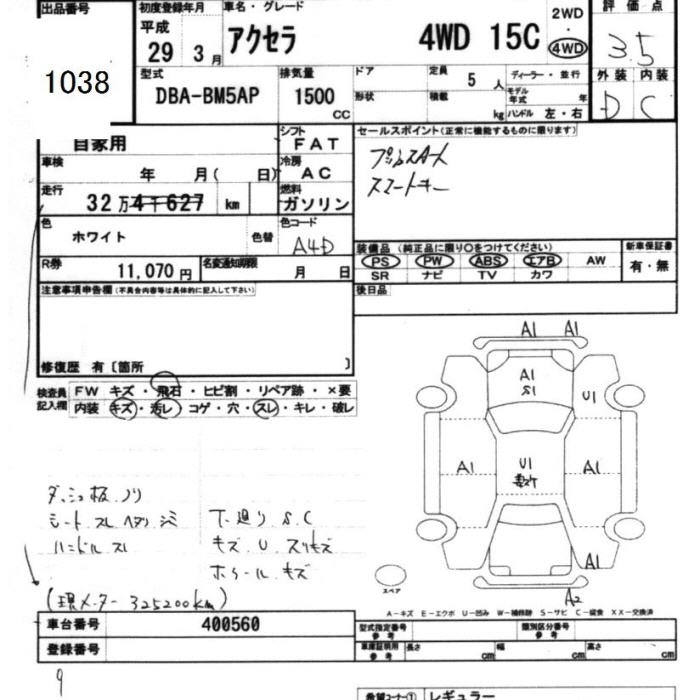 出品番号
1038
初度登録年月
平成
29 3月
車名・グレード
アクセラ 4WD 15C
2WD
・
4WD
評価点
3.5
外装 内装
D C
型式
DBA-BM5AP
排気量
1500
CC
ドア
定員
5人
ディーラー・並行
形状
積載
kg
モデル年式
年
ハンドル 左・右
自家用
シフト
FAT
車検
年 月( 日)
冷房
AC
走行
32万4千627 km
燃料
ガソリン
色
ホワイト
色替
色コード
A4D
R券
11,070円
名変通知期限
月 日
セールスポイント(正常に機能するものに限ります)
プッシュスタート
スマートキー
装備品 (純正品に限り○をつけてください)
PS PW ABS エアB AW
SR ナビ TV カワ
新車保証書
有・無
後日品
注意事項申告欄(不具合内容等は具体的に記入して下さい)
修復歴 有〔箇所 〕
検査員
記入欄
FW キズ・飛石・ヒビ割・リペア跡・×要
内装 キズ・汚レ・コゲ・穴・スレ・キレ・破レ
ダッシュ板 ノリ
シート スレ ヘタリ シミ
ハンドル スレ
下廻り S.C
キズ U スリキズ
ホイール キズ
(現メーター 325200km)
A1 A1
A1
S1
U1
A1
U1
A1
A1
A2
スペア
A-キズ E-エクボ U-凹み W-補修跡 S-サビ C-腐食 XX-交換済
車台番号
400560
登録番号
型式指定番号
参考
類別区分番号
参考
車庫証明用
参考
長さ
cm
幅
cm
高さ
cm
9
希望コーナー①
レギュラー